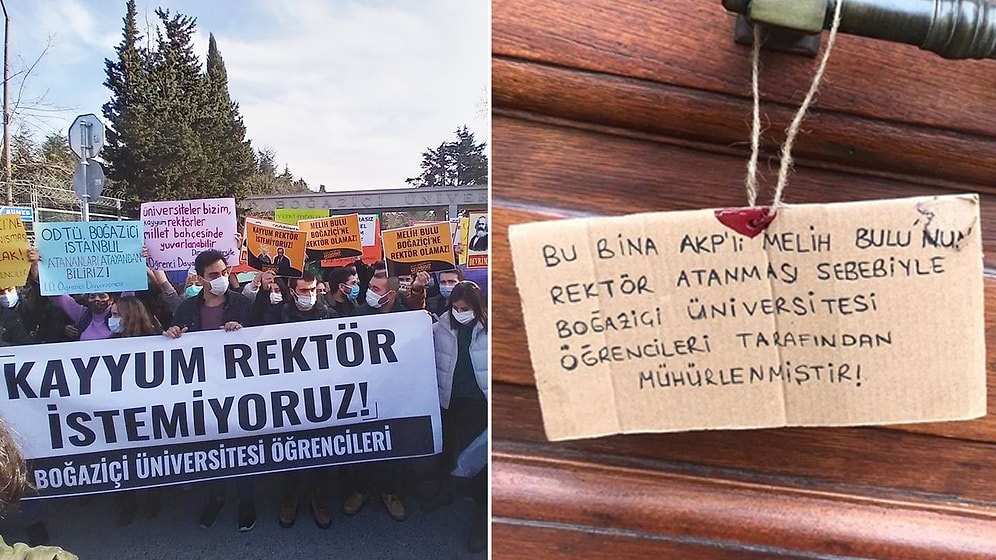 ODTÜ, BOĞAZİÇİ
İSTANBUL
ATANANLARI ATAYANDAN
BİLİRİZ!
İ.Ü. Öğrenci Dayanışması
üniversiteler bizim,
kayyum rektörler
millet bahçesinde
yuvarlanabilir
KAYYUM REKTÖR
İSTEMİYORUZ!
MELİH BULU
BOĞAZİÇİ'NE
REKTÖR OLAMAZ!
MELİH BULU
BOĞAZİÇİ'NE
REKTÖR OLAMAZ!
BOĞAZİÇİ ÜNİVERSİTESİ
KAYYUM REKTÖR
İSTEMİYORUZ!
BOĞAZİÇİ ÜNİVERSİTESİ ÖĞRENCİLERİ
BU BİNA AKP'li MELİH BULU'NUN
REKTÖR ATANMASI SEBEBİYLE
BOĞAZİÇİ ÜNİVERSİTESİ
ÖĞRENCİLERİ TARAFINDAN
MÜHÜRLENMİŞTİR!